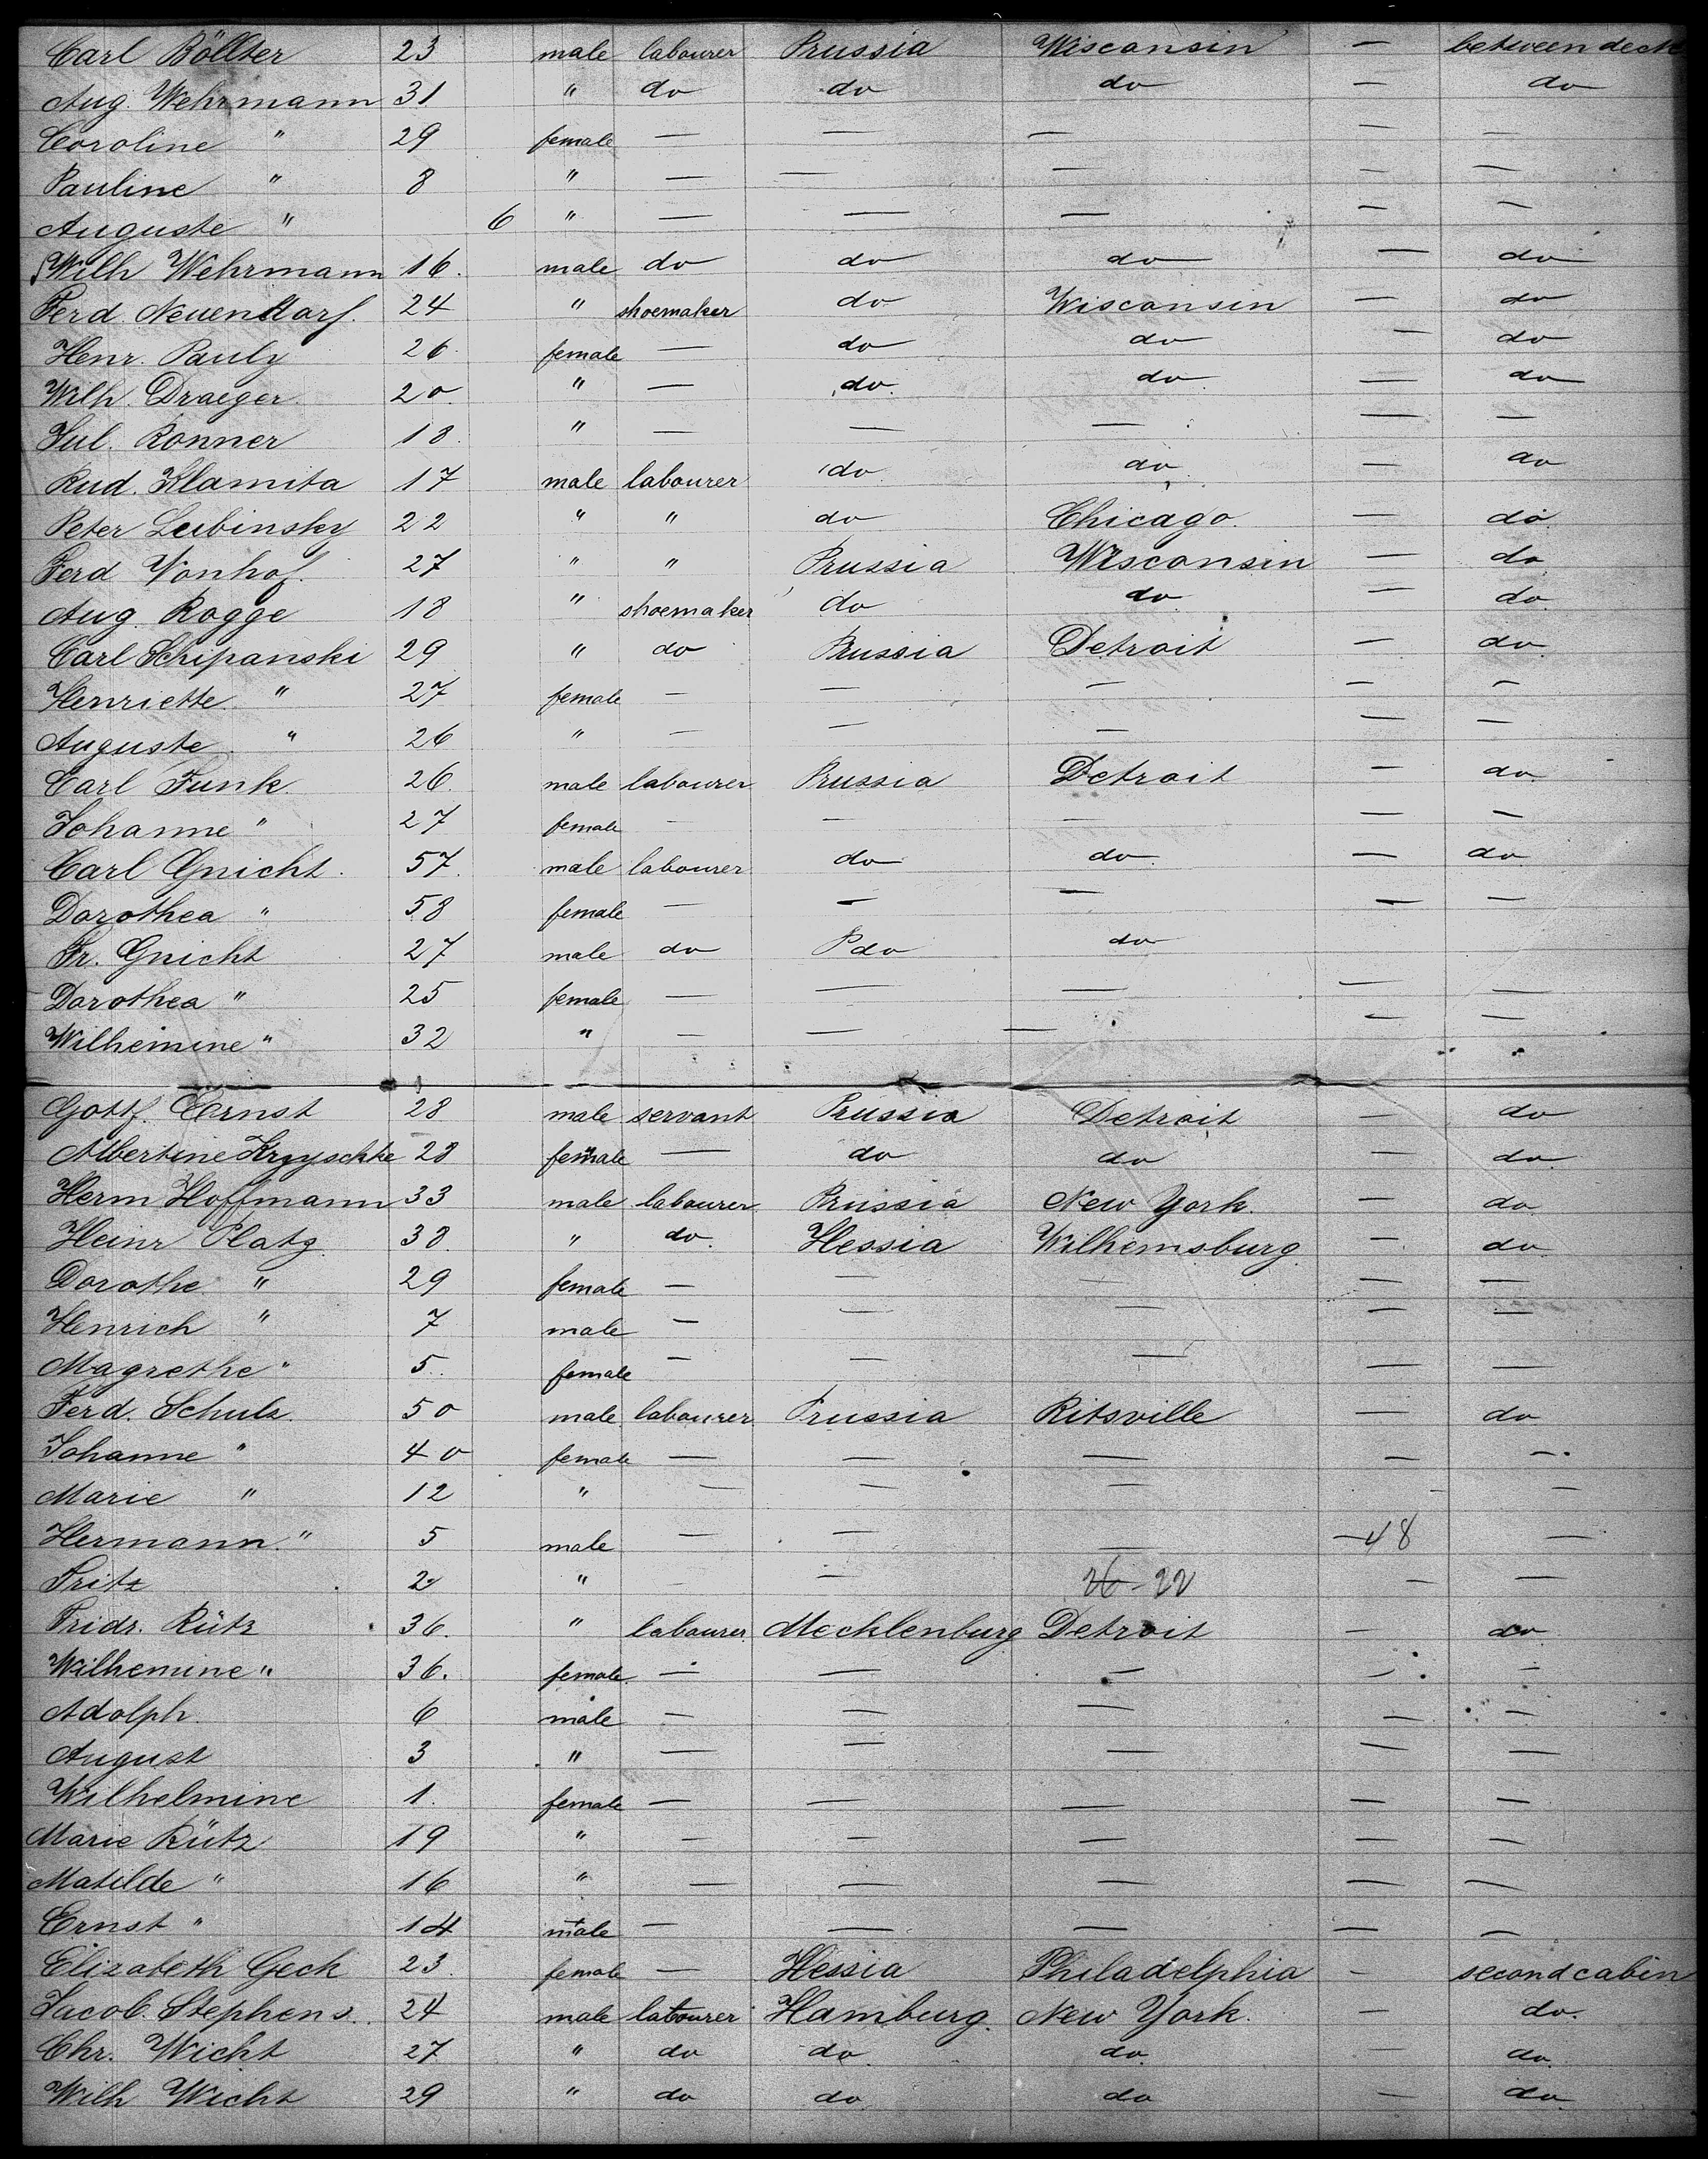 Carl Böllter 23 male labourer Prussia Wisconsin — between deck
Aug. Wehrmann 31 " do do do — do
Coroline " 29 female — — — — —
Pauline " 8 " — — — — —
Auguste " 6 " — — — — —
Wilh Wehrmann 16. male do do do — do
Ferd. Neuendorf. 24 " shoemaker do Wisconsin — do
Henr. Pauly 26. female — do do — do
Wilh. Draeger. 20. " — do. do. — do
Jul. Ronner 18. " — — — — —
Rud. Klamita 17 male labourer do do — do
Peter Lubinsky 22 " " do Chicago. — do
Ferd Vonhof. 27 " " Prussia Wisconsin — do
Aug. Rogge 18 " shoemaker do do — do.
Carl Schipanski 29 " do Prussia Detroit — do.
Henriette " 27 female — — — — —
Auguste " 26 " — — — — —
Carl Funk. 26. male labourer Prussia Detroit — do
Johanne " 27 female — — — — —
Carl Gnicht. 57. male labourer do do. — do
Dorothea " 58 female — — — — —
Fr. Gnicht 27 male do P do do
Dorothea " 25 female — — — — —
Wilhemine " 32 " — — — — —
Gottf. Ernst 28 male servant Prussia Detroit — do
Albertine 28 female — do do — do.
Herm Hoffmann 33 male labourer Prussia New York. — do.
Heinr Platz. 38. " do. Hessia Wilhemsburg. — do.
Dorothe " 29 female — — — — —
Henrich " 7 male — — — — —
Magrethe " 5. female — — — — —
Ferd. Schulz. 50 male labourer Prussia Ritsville — do
Johanne " 40 female — — — — —
Marie " 12 " — — — — —
Hermann " 5 male — — — —48 —
Fritz 2 " — — 26-22 — —
Fridr. Rütz 36. " labourer Mecklenburg Detroit — do.
Wilhemine " 36. female — — — — —
Adolph. 6 male — — — — —
August 3 " — — — — —
Wilhelmine 1. female — — — — —
Marie Rütz 19 " — — — — —
Matilde " 16 " — — — — —
Ernst " 14 male — — — — —
Elizabeth Geck 23. female — Hessia Philadelphia — second cabin
Jacob. Stephens. 24 male labourer Hamburg. New York. — do.
Chr. Wicht 27 " do do. do. — do.
Wilh Wicht 29 " do do. do — do.